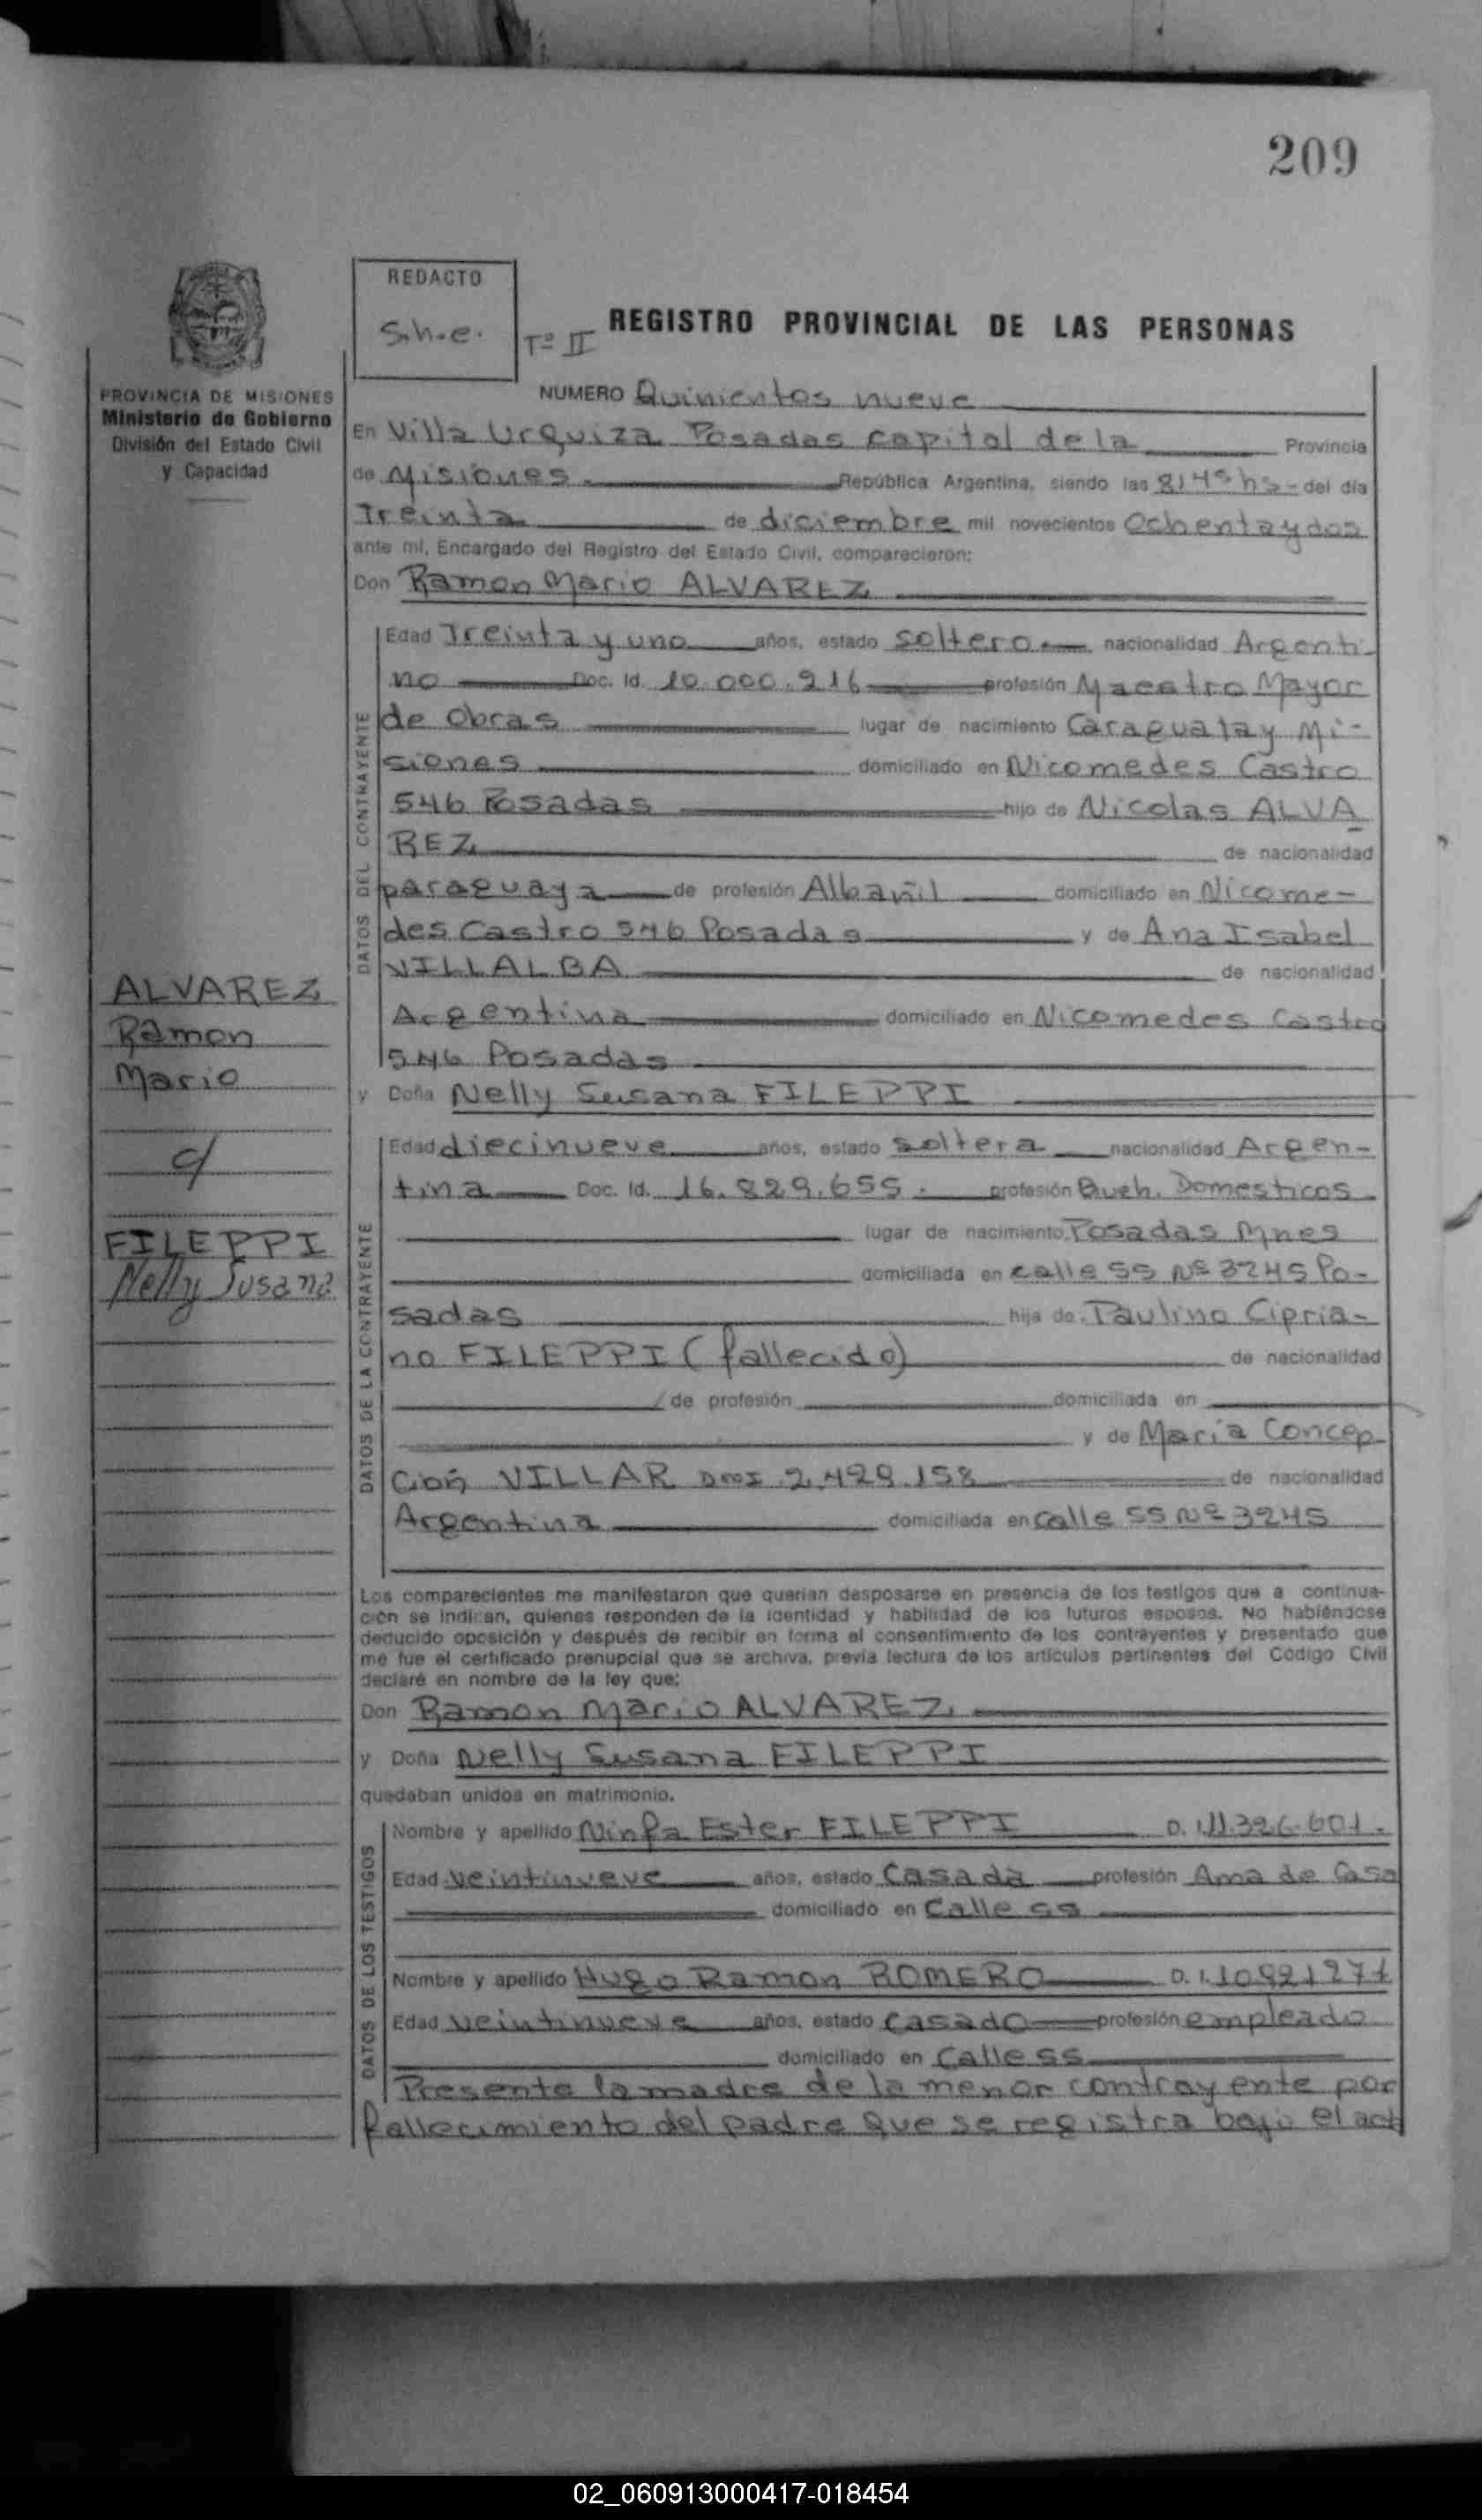 209
REDACTO
S.h.e.
Tº II
REGISTRO PROVINCIAL DE LAS PERSONAS
PROVINCIA DE MISIONES
Ministerio de Gobierno
División del Estado Civil
y Capacidad
NUMERO Quinientos nueve
En Villa Urquiza Posadas capital de la Provincia
de Misiones República Argentina, siendo las 8,45 hs del día
Treinta de diciembre mil novecientos Ochenta y dos
ante mí, Encargado del Registro del Estado Civil, comparecieron:
Don Ramon Mario ALVAREZ
DATOS DEL CONTRAYENTE
Edad Treinta y uno años, estado soltero nacionalidad Argenti-
no Doc. Id. 10.000.216 profesión Maestro Mayor
de Obras lugar de nacimiento Caraguatay Mi-
siones domiciliado en Nicomedes Castro
546 Posadas hijo de Nicolas ALVA
REZ de nacionalidad
paraguaya de profesión Albañil domiciliado en Nicome-
des Castro 546 Posadas y de Ana Isabel
VILLALBA de nacionalidad
Argentina domiciliado en Nicomedes Castro
546 Posadas
y Doña Nelly Susana FILEPPI
ALVAREZ
Ramon
Mario
c/
FILEPPI
Nelly Susana
DATOS DE LA CONTRAYENTE
Edad diecinueve años, estado soltera nacionalidad Argen-
tina Doc. Id. 16.829.655. profesión Queh. Domesticos
lugar de nacimiento Posadas Mnes
domiciliada en calle 55 Nº 3245 Po-
sadas hija de Paulino Cipria-
no FILEPPI (fallecido) de nacionalidad
de profesión domiciliada en
y de Maria Concep
cion VILLAR 2.429.158 de nacionalidad
Argentina domiciliada en Calle 55 Nº 3245
Los comparecientes me manifestaron que querian desposarse en presencia de los testigos que a continua-
ción se indican, quienes responden de la identidad y habilidad de los futuros esposos. No habiéndose
deducido oposición y después de recibir en forma el consentimiento de los contrayentes y presentado que
me fue el certificado prenupcial que se archiva, previa lectura de los artículos pertinentes del Código Civil
declaré en nombre de la ley que:
Don Ramon Mario ALVAREZ
y Doña Nelly Susana FILEPPI
quedaban unidos en matrimonio.
DATOS DE LOS TESTIGOS
Nombre y apellido Ninfa Ester FILEPPI D. I. 11.326.601.
Edad veintinueve años, estado Casada profesión Ama de Casa
domiciliado en Calle 55
Nombre y apellido Hugo Ramon ROMERO D. I. 10921277
Edad veintinueve años, estado casado profesión empleado
domiciliado en Calle 55
Presente la madre de la menor contrayente por
fallecimiento del padre que se registra bajo el act
02_060913000417-018454